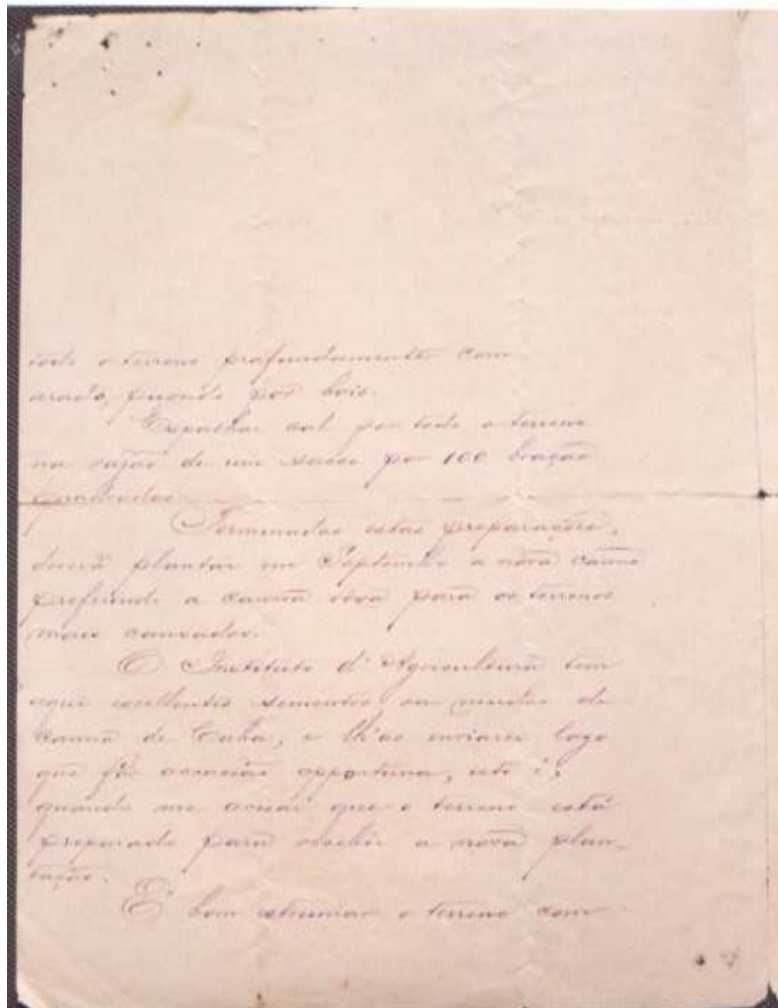 todo o terreno profundamente com
arado, puxado por bois.
Espalhar cal por todo o terreno
na razão de um sacco por 100 braças
quadradas.
Terminadas estas preparações,
deverá plantar em Septembro a nova canna
preferindo a canna rôxa para os terrenos
mais cansados.
O Instituto d'Agricultura tem
aqui excellentes sementes ou mudas de
canna de Cuba, e lh'as enviarei logo
que fôr occasião opportuna, isto é,
quando me avisar que o terreno está
preparado para receber a nova plan-
tação.
É bom estrumar o terreno com